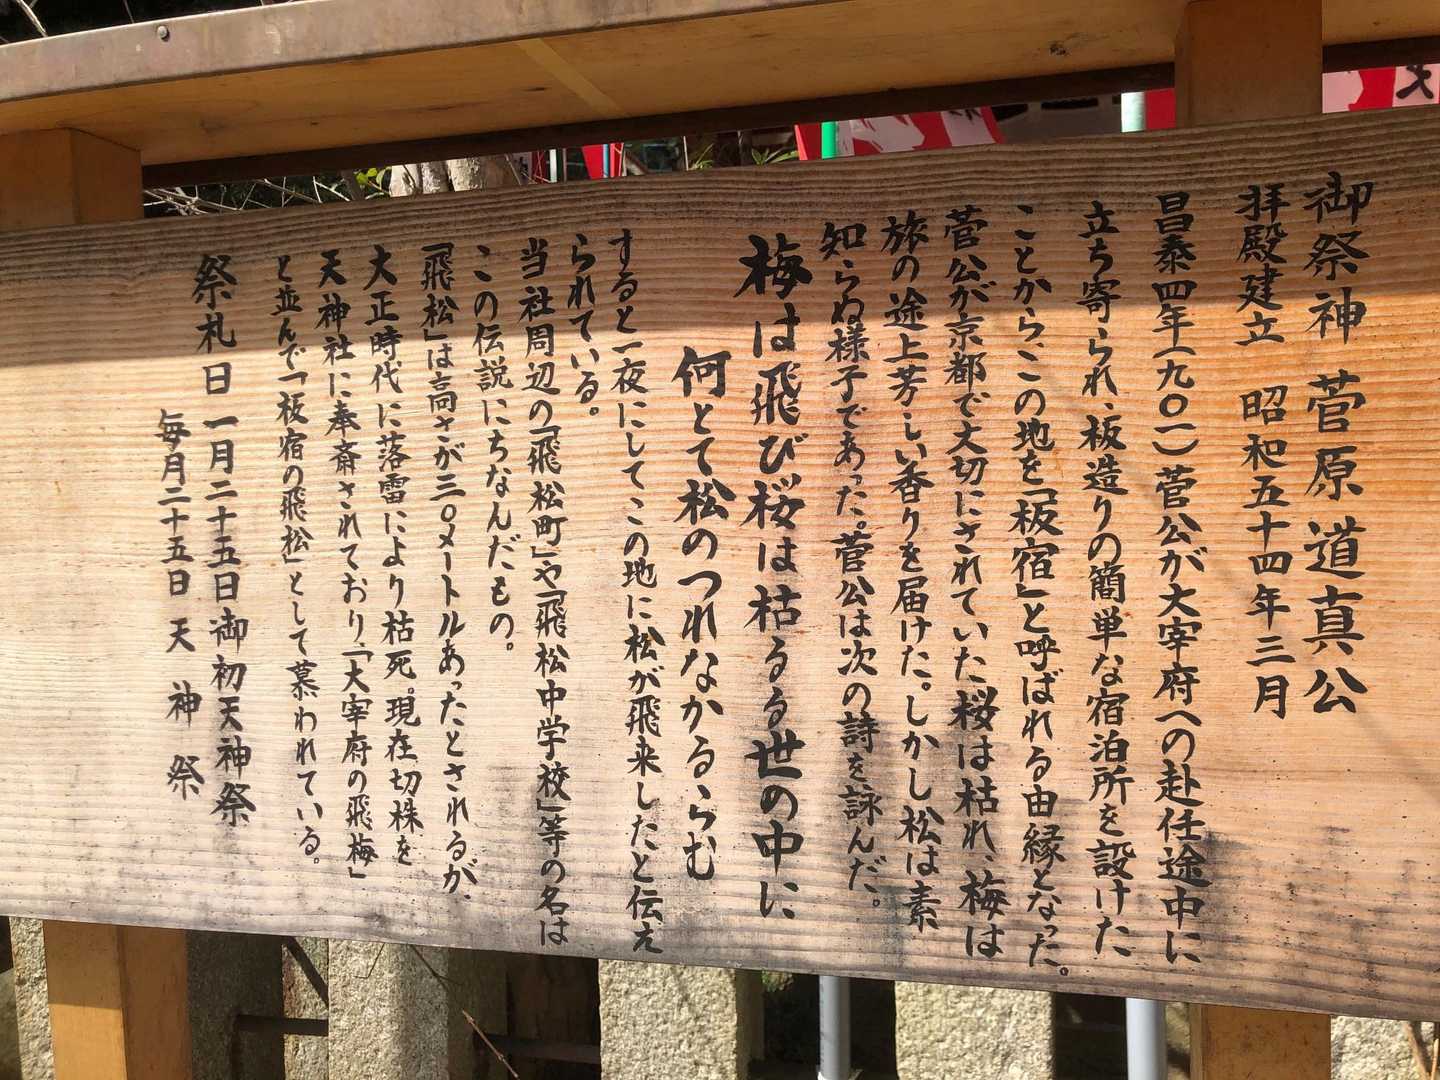 御祭神 菅原道真公
拝殿建立 昭和五十四年三月
昌泰四年(九〇一)菅公が大宰府への赴任途中に
立ち寄られ、板造りの簡単な宿泊所を設けた
ことから、この地を「板宿」と呼ばれる由縁となった。
菅公が京都で大切にされていた桜は枯れ、梅は
旅の途上芳しい香りを届けた。しかし松は素
知らぬ様子であった。菅公は次の詩を詠んだ。
梅は飛び桜は枯るる世の中に
何とて松のつれなかるらむ
すると一夜にしてこの地に松が飛来したと伝え
られている。
当社周辺の「飛松町」や「飛松中学校」等の名は
この伝説にちなんだもの。
「飛松」は高さが三〇メートルあったとされるが、
大正時代に落雷により枯死。現在切株を
天神社に奉斎されており、「大宰府の飛梅」
と並んで「板宿の飛松」として慕われている。
祭礼日 一月二十五日 御初天神祭
毎月二十五日 天神祭